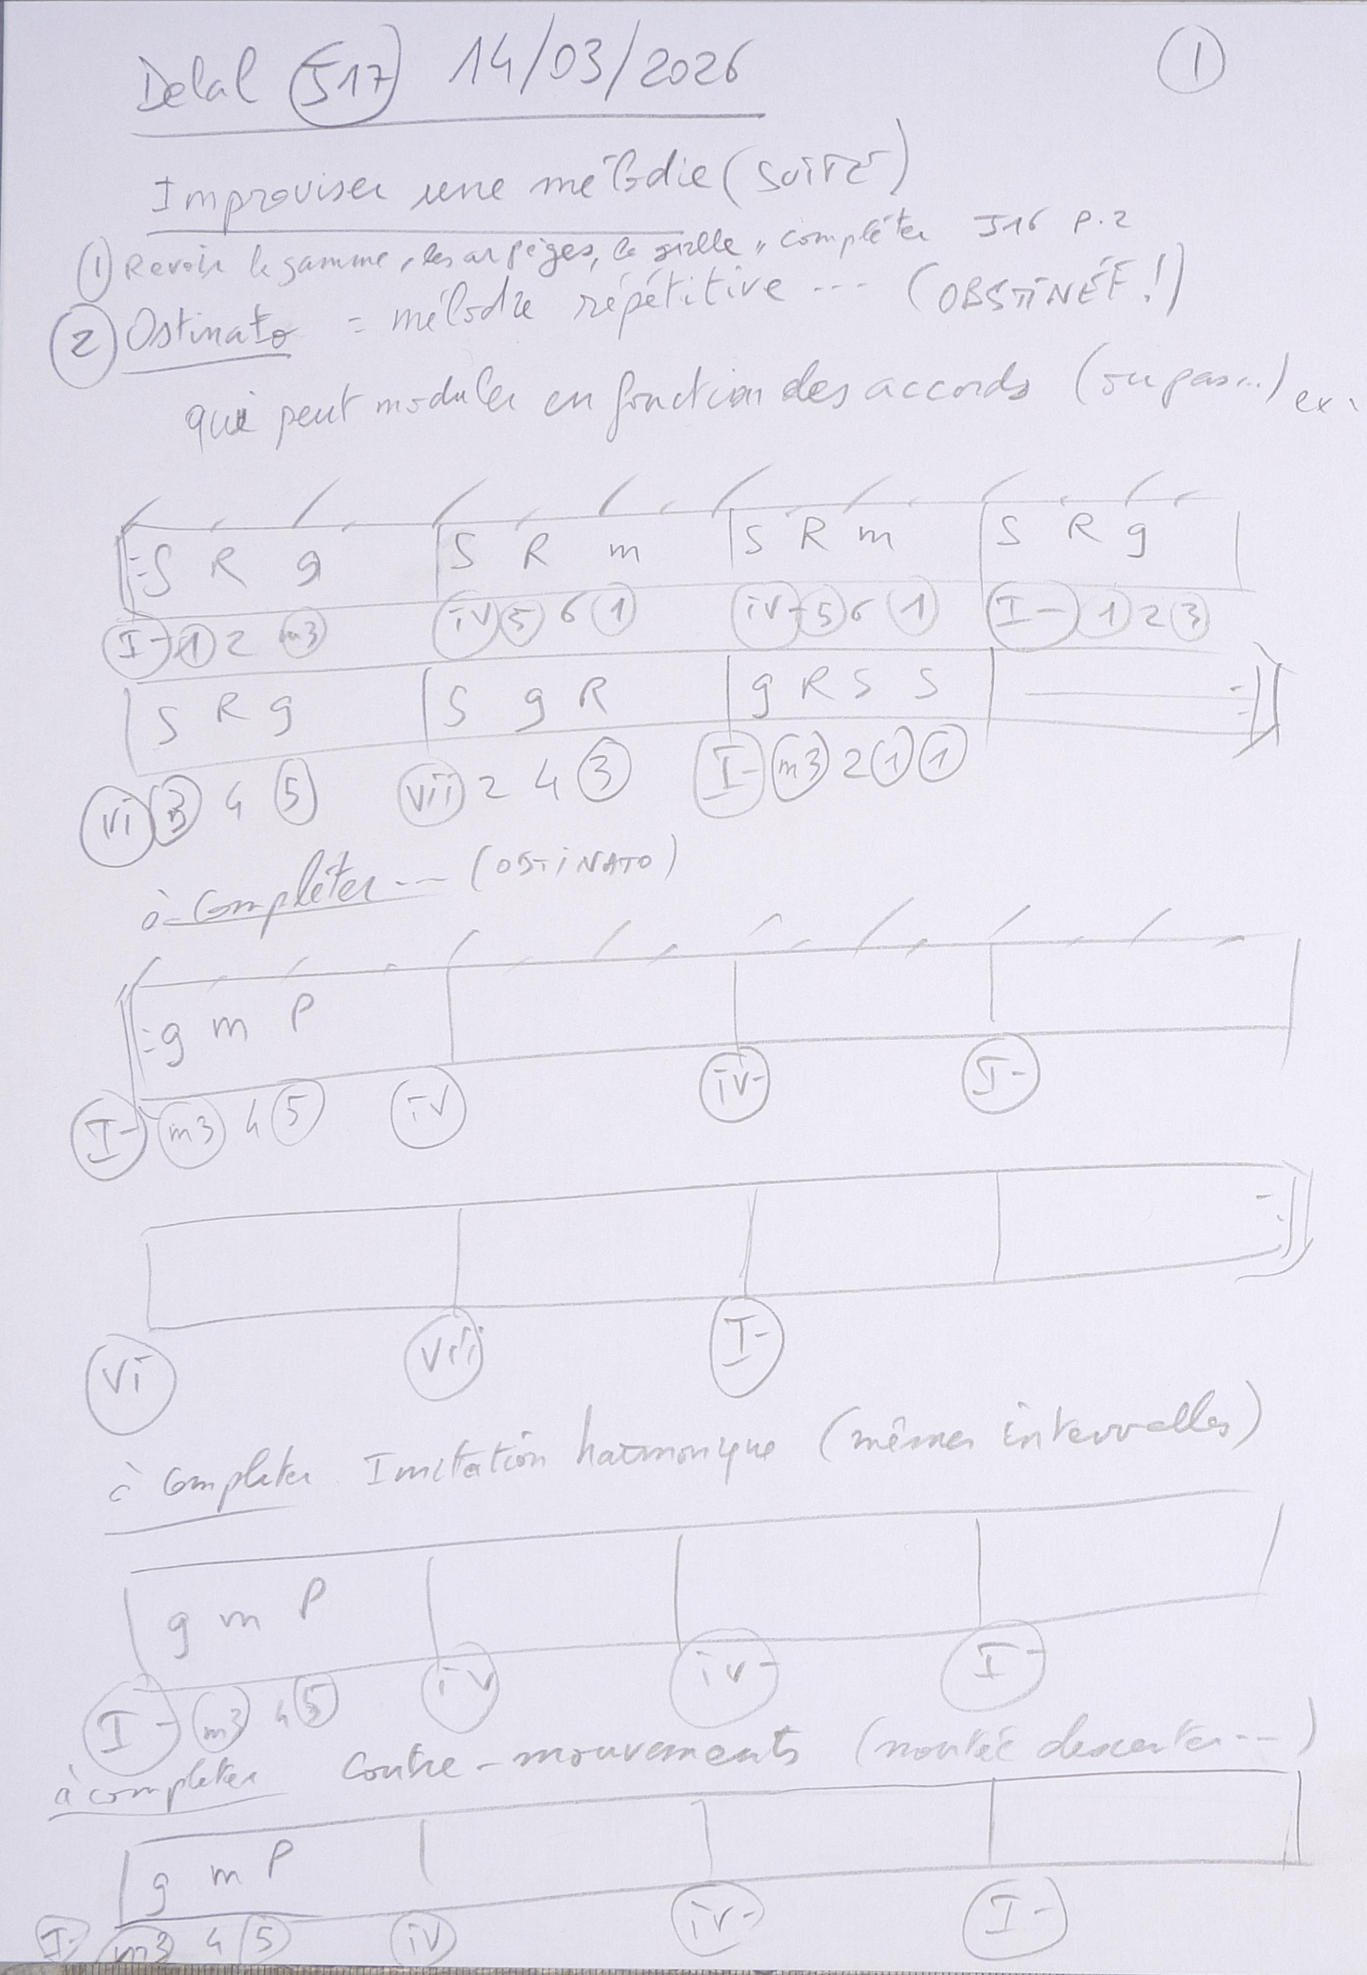 Delal (J17) 14/03/2026 ①
Improviser une mélodie (SUITE)
① Revoir la gamme, les arpèges, la grille, compléter J16 P.2
② Ostinato = mélodie répétitive --- (OBSTINÉE!)
qui peut moduler en fonction des accords (ou pas...) ex.
S R g | S R m | S R m | S R g
I- 1 2 m3 iv 5 6 1 iv- 5 6 1 I- 1 2 3
S R g | S g R | g R S S
vi 3 4 5 vii 2 4 3 I- m3 2 1 1
à compléter --- (OSTINATO)
g m P
I- m3 4 5 iv iv- I-
vi vii I-
à compléter Imitation harmonique (mêmes intervalles)
g m P
I- m3 4 5 iv iv- I-
à compléter contre-mouvements (montée descentes ---)
g m P
I- m3 4 5 iv iv- I-